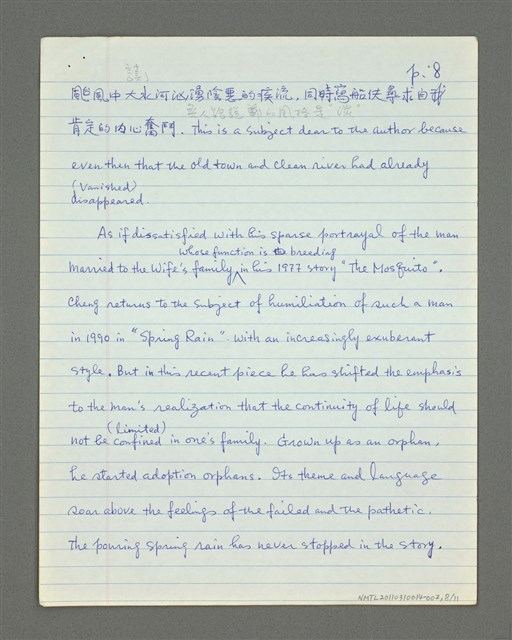 p. 8
颱風中大水河汹湧陰惡的疾流,同時寫船伕尋求自我
肯定的內心奮鬥. This is a subject dear to the author because
even then that the old town and clean river had already
(Vanished)
disappeared.
As if dissatisfied with his sparse portrayal of the man
whose function is breeding
married to the wife's family in his 1977 story "The Mosquito".
Cheng returns to the subject of humiliation of such a man
in 1990 in "Spring Rain" with an increasingly exuberant
style. But in this recent piece he has shifted the emphasis
to the man's realization that the continuity of life should
(limited)
not be confined in one's family. Grown up as an orphan,
he started adoption orphans. Its theme and language
soar above the feelings of the failed and the pathetic.
The pouring spring rain has never stopped in the story.
NMTL20110310014-002, 8/11